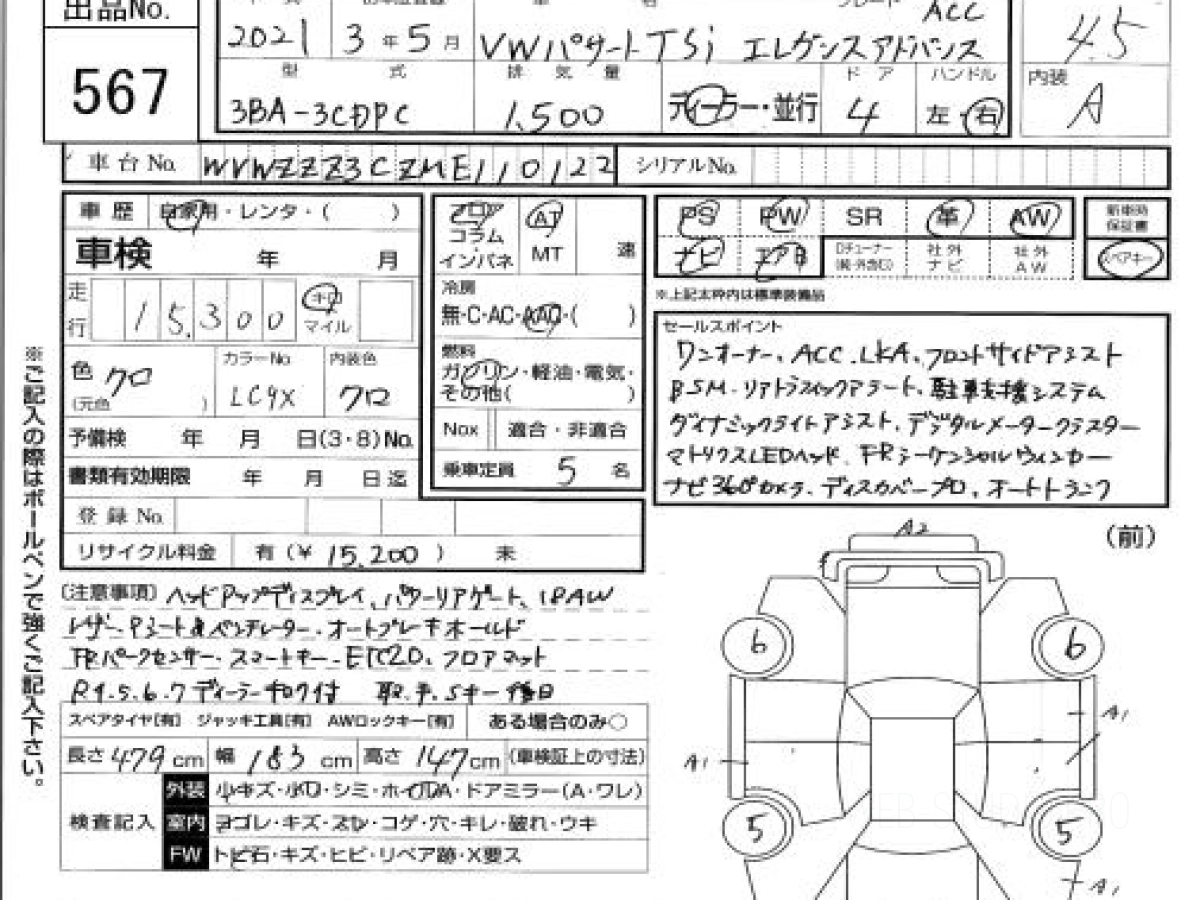 出品No. 567
2021 3年5月 VWパサートTSi エレガンスアドバンス ACC
4.5
型式 排気量 ドア ハンドル
内装 A
3BA-3CDPC 1,500 ディーラー・並行 4 左・右
車台No. WVWZZZ3CZME110122 シリアルNo.
車歴 自家用・レンタ・( )
車検 年 月
走行 15,300 キロ マイル
色 クロ (元色 ) カラーNo LC9X 内装色 クロ
予備検 年 月 日(3・8)No.
書類有効期限 年 月 日迄
登録No.
リサイクル料金 有 (¥ 15,200 ) 未
フロア コラム インパネ AT MT 速
冷房
無・C・AC・AAC・( )
燃料
ガソリン・軽油・電気・
その他( )
Nox 適合・非適合
乗車定員 5 名
PS PW SR 革 AW
ナビ エアB Dチューナー 社外ナビ 社外AW
新車時保証書 スペアキー
※上記太枠内は標準装備品
セールスポイント
ワンオーナー、ACC、LKA、フロントサイドアシスト
BSM、リアトラフィックアラート、駐車支援システム
ダイナミックライトアシスト、デジタルメータークラスター
マトリクスLEDヘッド、FRシーケンシャルウィンカー
ナビ360°カメラ、ディスカバープロ、オートトランク
※ご記入の際はボールペンで強くご記入下さい。
(注意事項) ヘッドアップディスプレイ、パワーリアゲート、18AW
レザーPシート&ベンチレーター、オートブレーキホールド
FRパークセンサー、スマートキー、ETC2.0、フロアマット
R4.5.6.7ディーラー記録付 取、手、Sキー後日
スペアタイヤ[有] ジャッキ工具[有] AWロックキー[有] ある場合のみ○
長さ 479 cm 幅 183 cm 高さ 147 cm (車検証上の寸法)
検査記入
外装 小キズ・小凹・シミ・ホイールA・ドアミラー(A・ワレ)
室内 ヨゴレ・キズ・スレ・コゲ・穴・キレ・破れ・ウキ
FW トビ石・キズ・ヒビ・リペア跡・X要ス
(前)
A2
6 6
A1 A1
5 5
A1